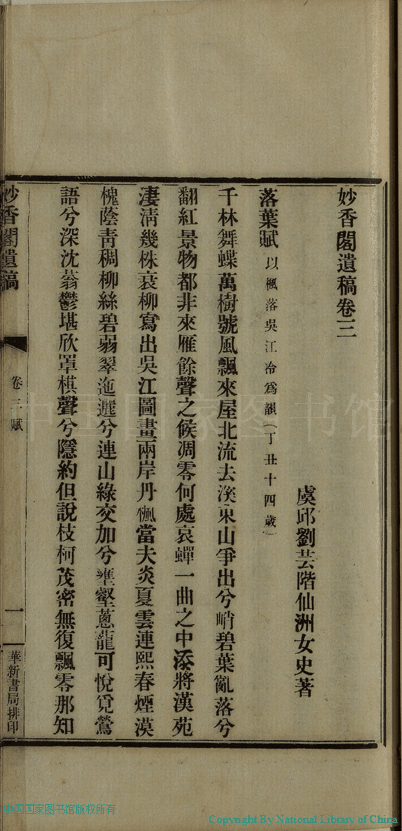 妙香閣遺稿卷三
虞邱劉芸階仙洲女史著
落葉賦 以楓落吳江冷爲韻（丁丑十四歲）
千林舞蝶萬樹號風飄來屋北流去溪東山爭出兮峭碧葉亂落兮
翻紅景物都非來雁餘聲之候凋零何處哀蟬一曲之中添將漢苑
淒清幾株衰柳寫出吳江圖畫兩岸丹楓當夫炎夏雲連熙春煙漠
槐蔭青稠柳絲碧弱翠迤邐兮連山綠交加兮壅壑蔥蘢可悅覓鶯
語兮深沈蓊鬱堪欣罩棋聲兮隱約但說枝柯茂密無復飄零那知
妙香閣遺稿
卷三 賦
一
華新書局排印
中国国家图书馆
中国国家图书馆版权所有
Copyright By National Library of China